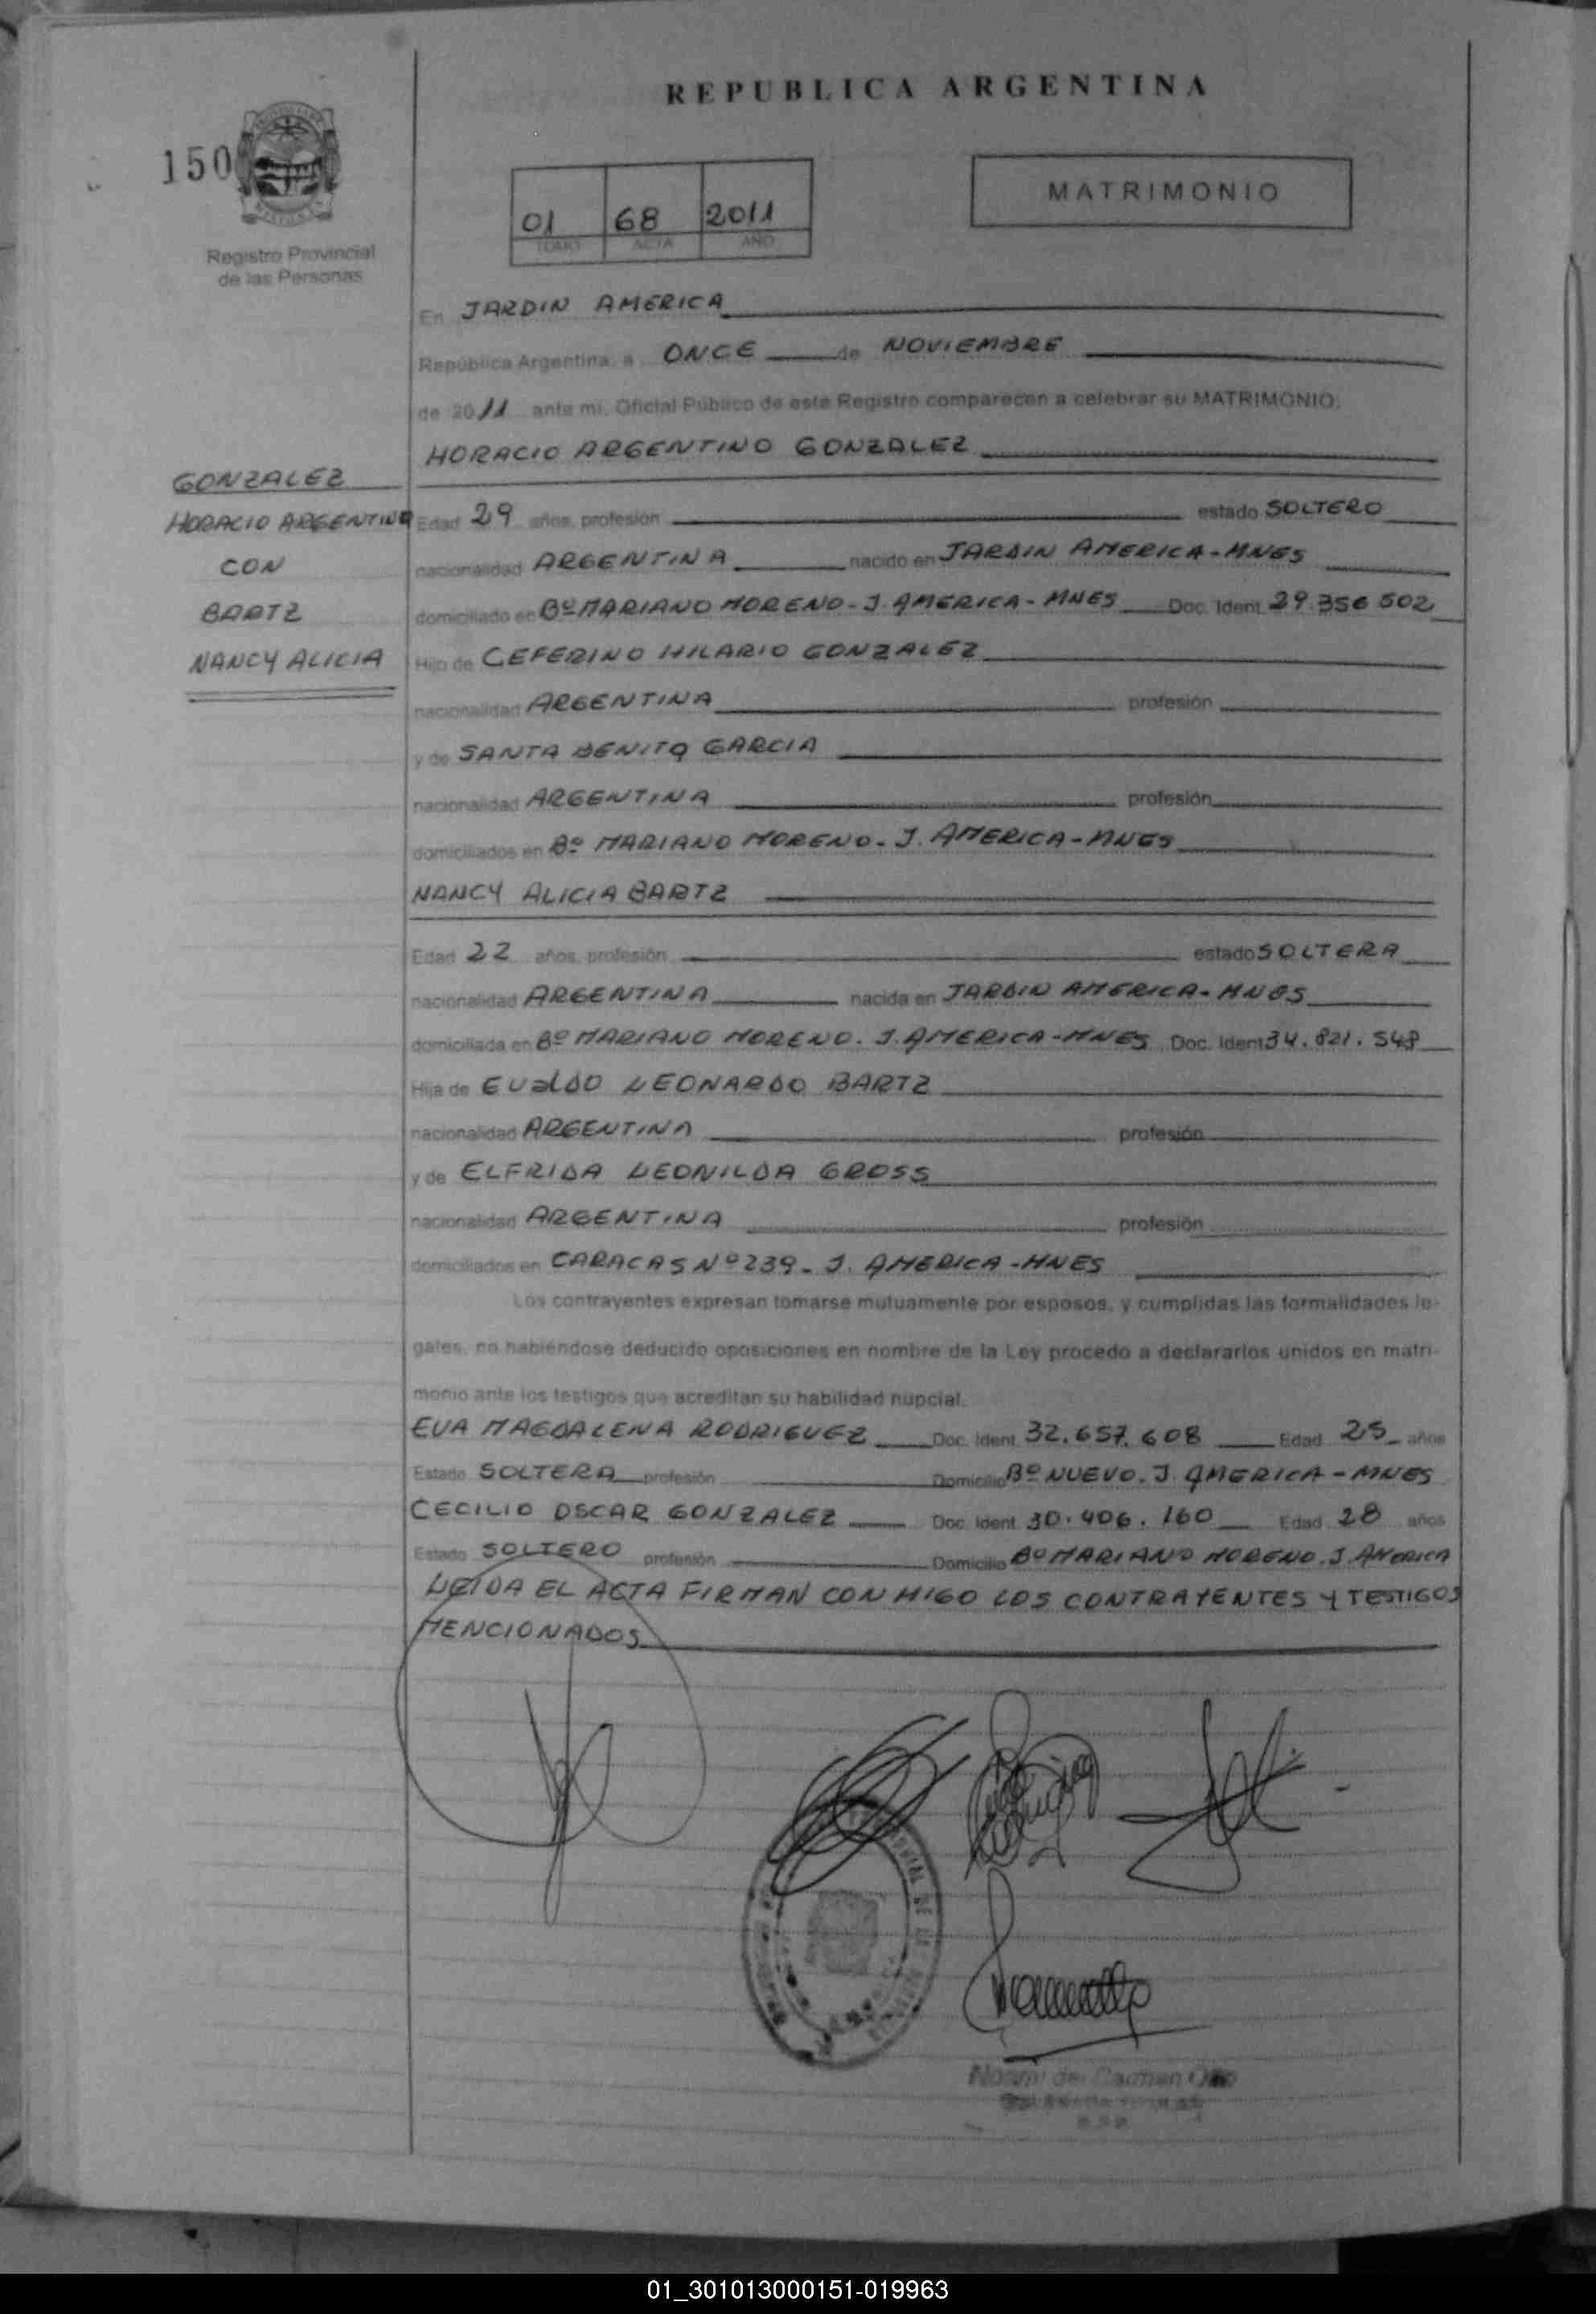 REPUBLICA ARGENTINA
150
MATRIMONIO
01 68 2011
TOMO ACTA AÑO
Registro Provincial
de las Personas
En JARDIN AMERICA
República Argentina, a ONCE de NOVIEMBRE
de 2011 ante mí, Oficial Público de este Registro comparecen a celebrar su MATRIMONIO:
HORACIO ARGENTINO GONZALEZ
GONZALEZ
HORACIO ARGENTINO
CON
BARTZ
NANCY ALICIA
Edad 29 años, profesión estado SOLTERO
nacionalidad ARGENTINA nacido en JARDIN AMERICA-MNES
domiciliado en Bº MARIANO MORENO-J. AMERICA-MNES Doc. Ident. 29.356 502
Hijo de CEFERINO HILARIO GONZALEZ
nacionalidad ARGENTINA profesión
y de SANTA BENITA GARCIA
nacionalidad ARGENTINA profesión
domiciliados en Bº MARIANO MORENO-J. AMERICA-MNES
NANCY ALICIA BARTZ
Edad 22 años, profesión estado SOLTERA
nacionalidad ARGENTINA nacida en JARDIN AMERICA-MNES
domiciliada en Bº MARIANO MORENO. J. AMERICA-MNES Doc. Ident 34.821.548
Hija de EUALDO LEONARDO BARTZ
nacionalidad ARGENTINA profesión
y de ELFRIDA LEONILDA GROSS
nacionalidad ARGENTINA profesión
domiciliados en CARACAS Nº 239-J. AMERICA-MNES
Los contrayentes expresan tomarse mutuamente por esposos, y cumplidas las formalidades le-
gales, no habiéndose deducido oposiciones en nombre de la Ley procedo a declararlos unidos en matri-
monio ante los testigos que acreditan su habilidad nupcial.
EVA MAGDALENA RODRIGUEZ Doc. Ident. 32.657.608 Edad 25 años
Estado SOLTERA profesión Domicilio Bº NUEVO. J. AMERICA-MNES
CECILIO OSCAR GONZALEZ Doc. Ident. 30.406.160 Edad 28 años
Estado SOLTERO profesión Domicilio Bº MARIANO MORENO. J. AMERICA
LEIDA EL ACTA FIRMAN CONMIGO LOS CONTRAYENTES Y TESTIGOS
MENCIONADOS
del Carmen
01_301013000151-019963